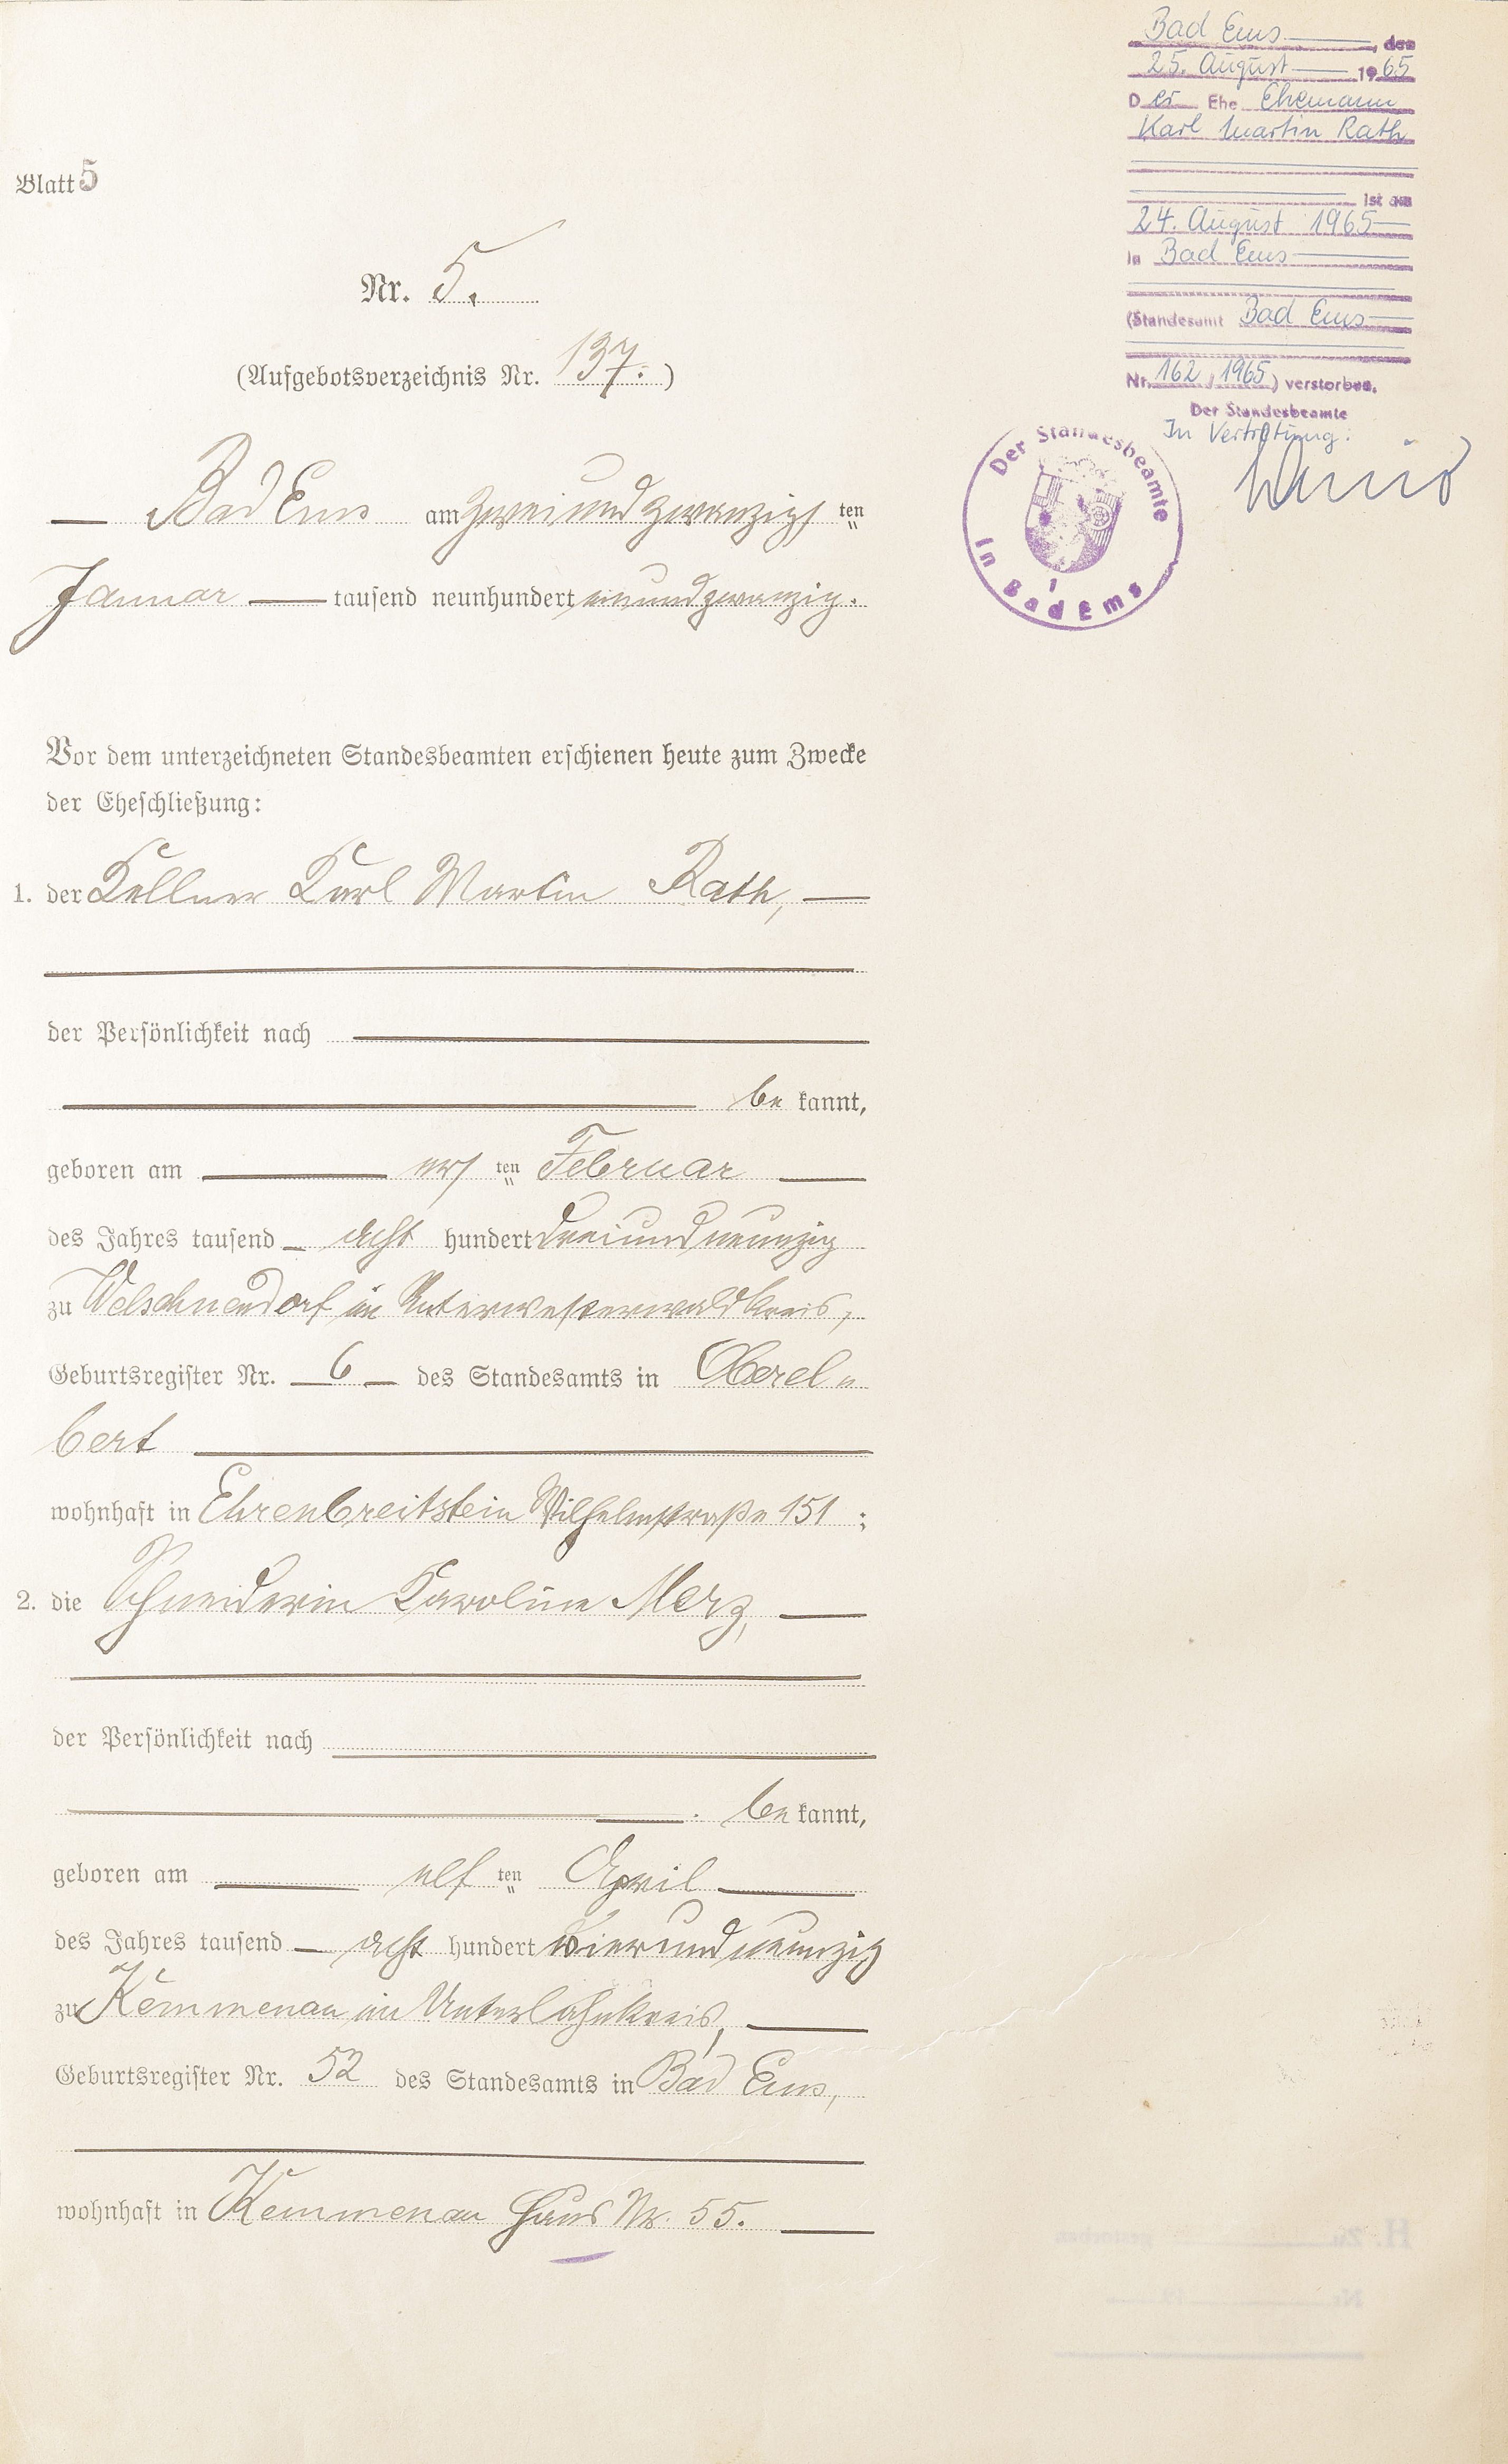 Bad Ems, den
25. August 1965
Der Ehe Ehemann
Karl Martin Rath
ist am
24. August 1965
in Bad Ems
(Standesamt Bad Ems
Nr. 162 / 1965) verstorben.
Der Standesbeamte
In Vertretung:
Der Standesbeamte
in Bad Ems
1
Blatt 5
Nr. 5.
(Aufgebotsverzeichnis Nr. 137.)
Bad Ems am zweiundzwanzigsten
Januar tausend neunhundert einundzwanzig.
Vor dem unterzeichneten Standesbeamten erschienen heute zum Zwecke
der Eheschließung:
1. der Kellner Karl Martin Rath,
der Persönlichkeit nach
be kannt,
geboren am ersten Februar
des Jahres tausend acht hundert dreiundneunzig
zu Welschneudorf im Unterwesterwaldkreis,
Geburtsregister Nr. 6 des Standesamts in Oberel„
bert
wohnhaft in Ehrenbreitstein Wilhelmstraße 151;
2. die Schneiderin Karoline Merz,
der Persönlichkeit nach
be kannt,
geboren am elften April
des Jahres tausend acht hundert vierundneunzig
zu Kemmenau im Unterlahnkreis,
Geburtsregister Nr. 52 des Standesamts in Bad Ems,
wohnhaft in Kemmenau Haus Nr. 55.